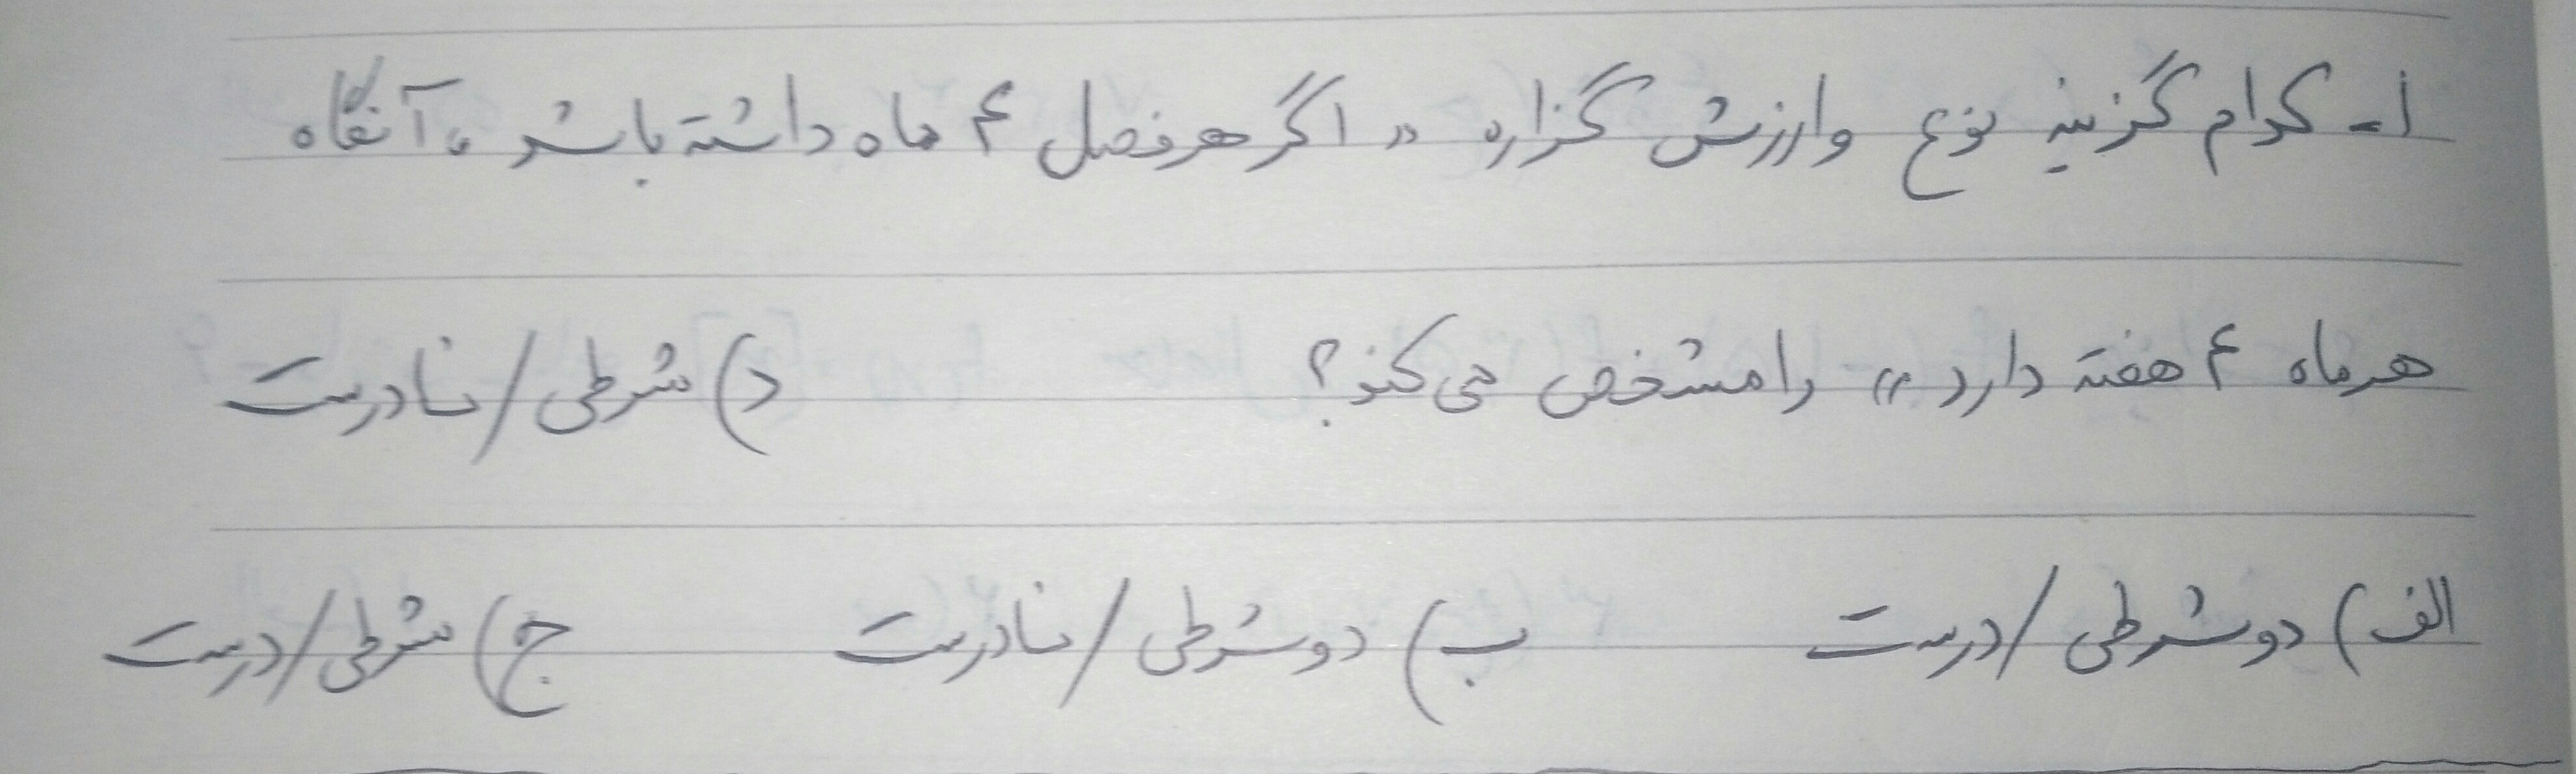 ۱- کدام گزینه نوع وارزش گزاره «اگر هر فصل ۴ ماه داشته باشد، آنگاه
هرماه ۴ هفته دارد» را مشخص می کند؟ د) شرطی/نادرست
الف) دوشرطی/درست ب) دوشرطی/نادرست ج) شرطی/درست